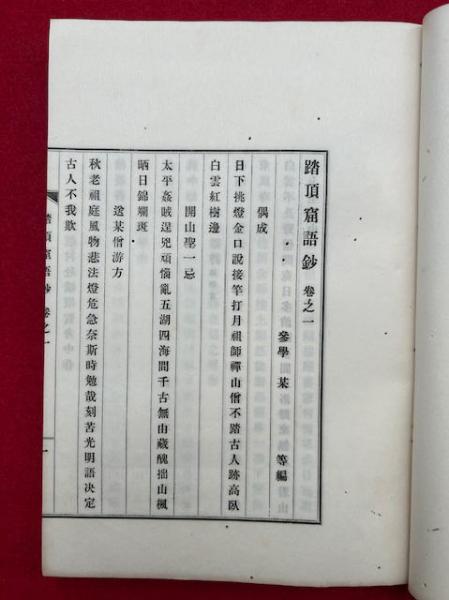 踏頂窟語鈔 卷之一
參學 某 等編
偶成
日下挑燈金口說接竿打月祖師禪山僧不踏古人跡高臥
白雲紅樹邊
開山聖一忌
太平姦賊逞兇頑惱亂五湖四海間千古無由藏醜拙山楓
晒日錦斕斑
送某僧游方
秋老祖庭風物悲法燈危急奈斯時勉哉刻苦光明語决定
古人不我欺
踏頂窟語鈔 卷之一
一